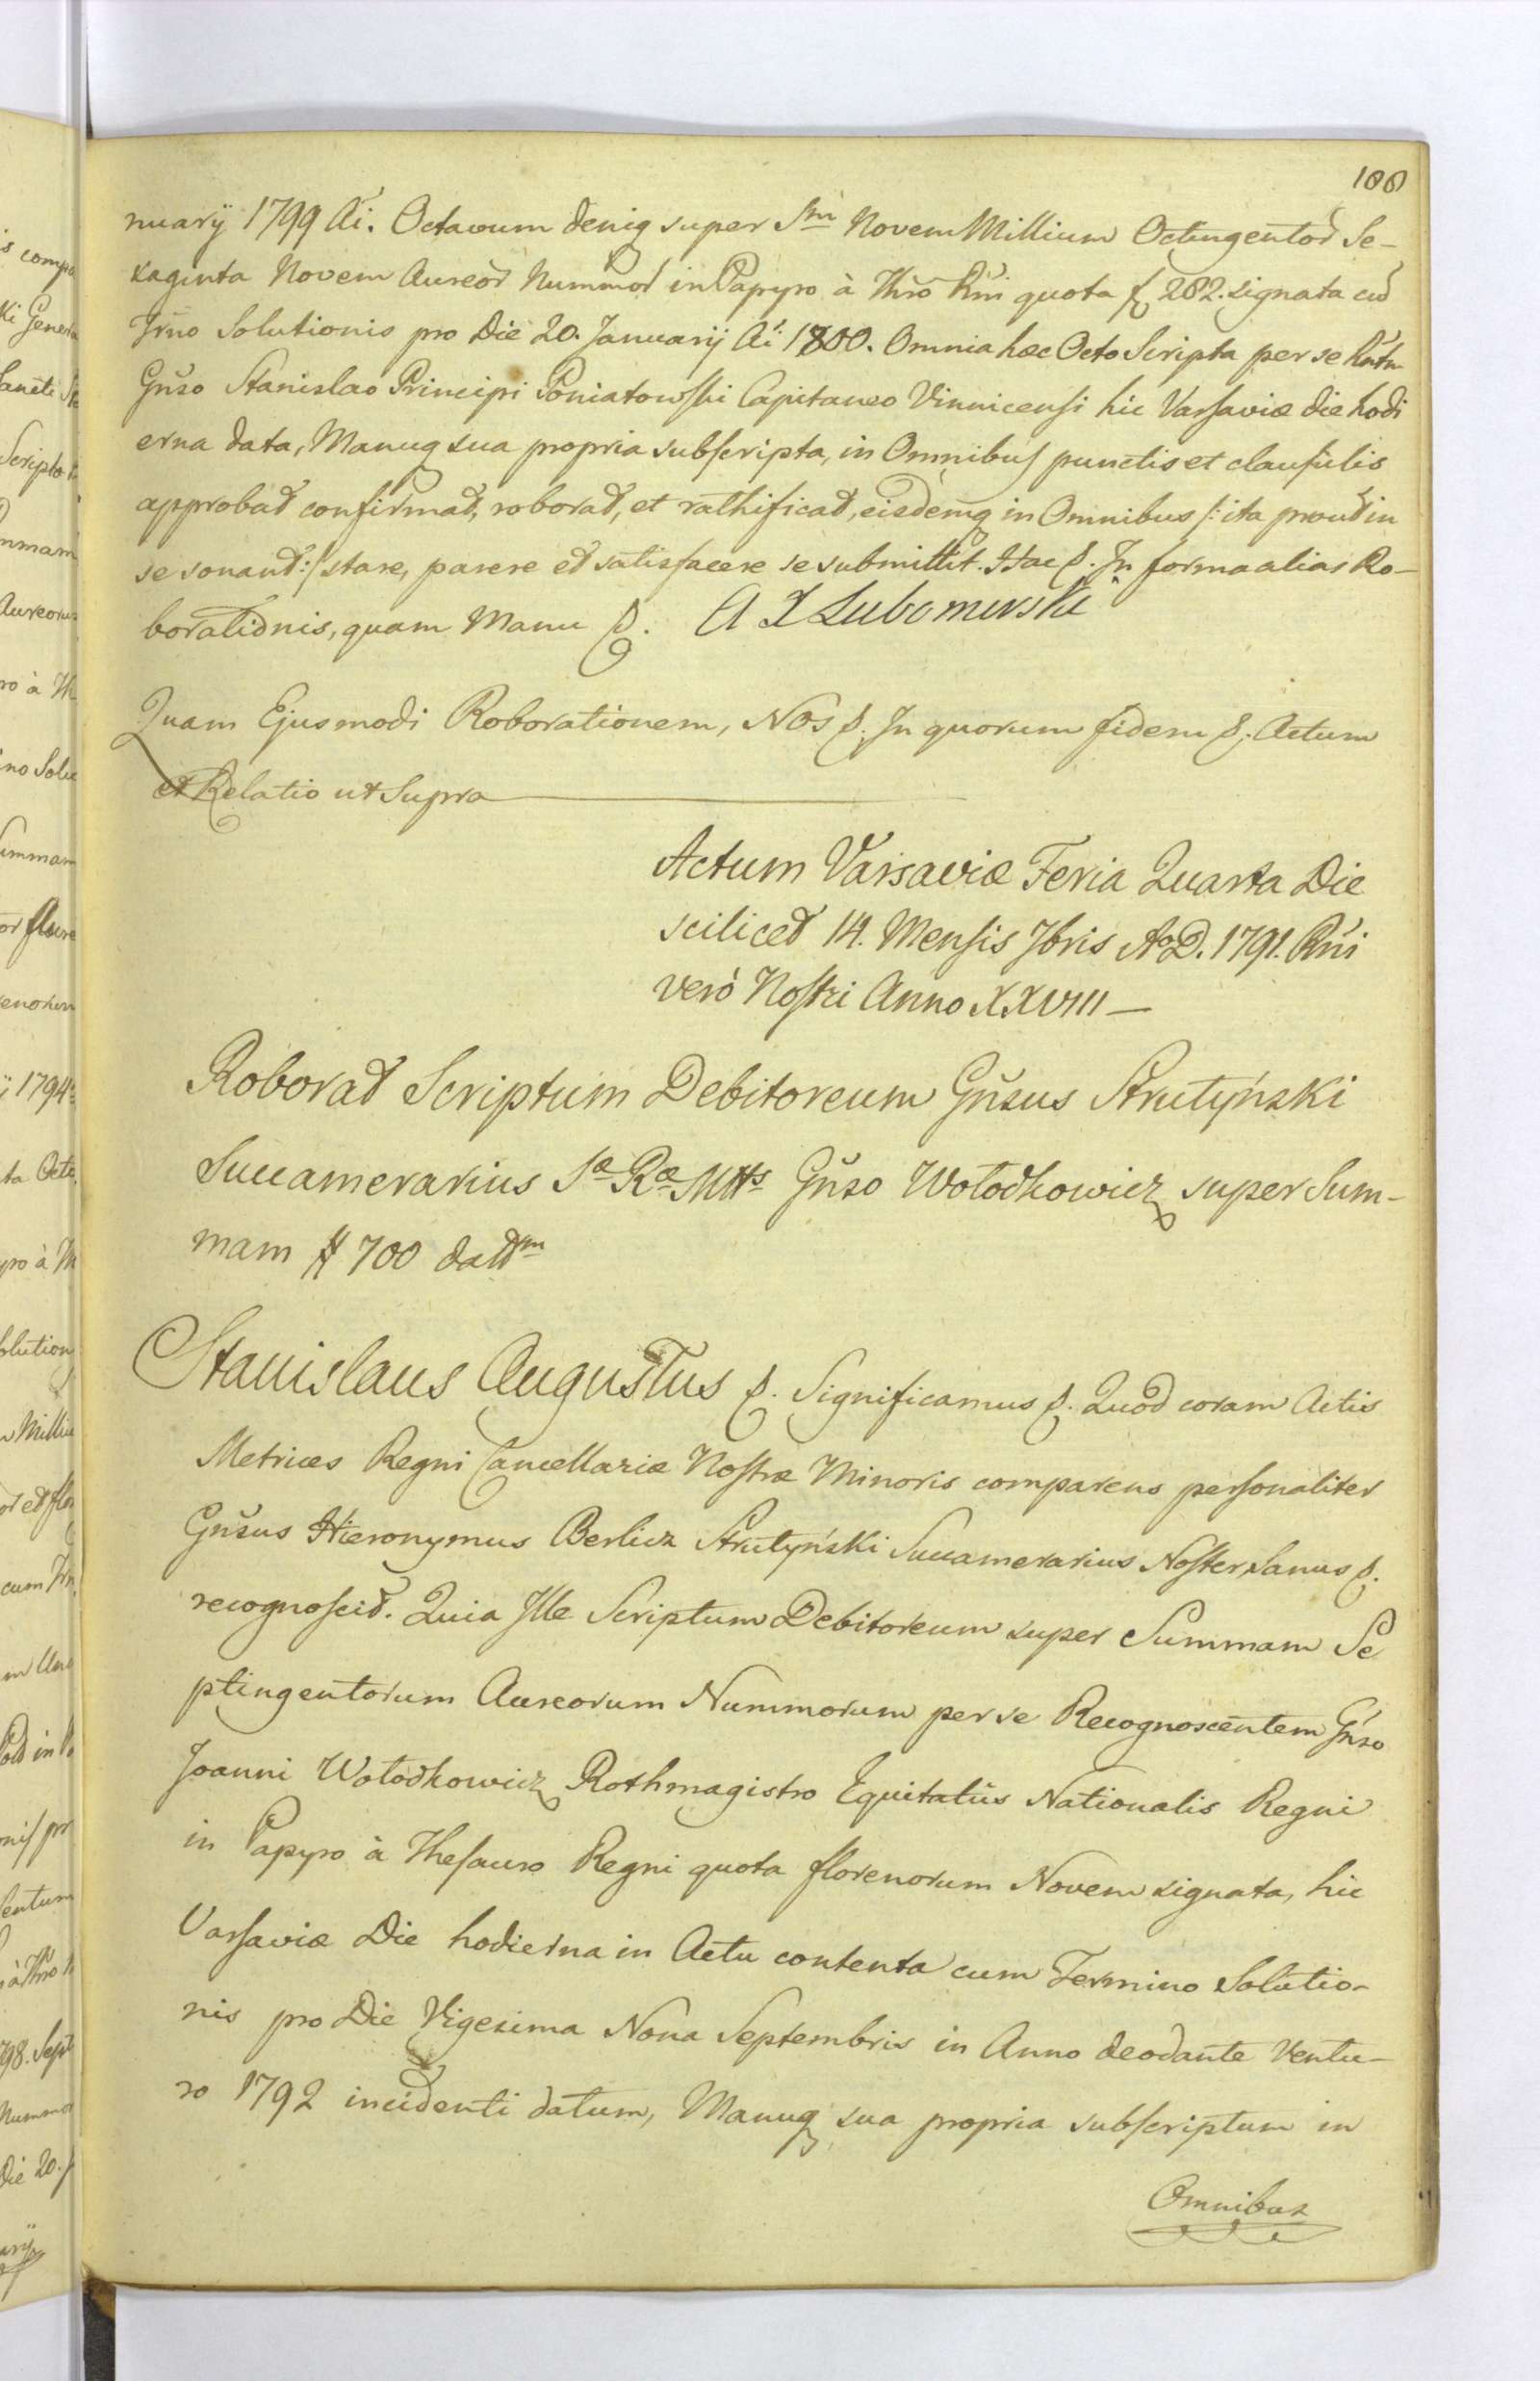 100
nuarÿ 1799 Ai. Octavum deniq super Sm̃ Novem Millium Octingentor Se-
xaginta Novem Aureor Nummor in Papyro à Thro Rni quota f 282. signata cũ
Trno Solutionis pro Die 20. Januarÿ Ai 1800. Omnia hæc Octo Scripta per se Rntm
Gnso Stanislao Principi Poniatowski Capitaneo Vinnicensi hic Varsaviæ die hodi
erna data, Manuq sua propria subscripta, in Omnibus punctis et clausulis
approbat confirmat, roborat, et rathificat, eisdemq in Omnibus /: ita prout in
se sonant :/ stare, parere et satisfacere se submittit. Hac p. In forma alias Ro-
borationis, quam Manu p. A X Lubomirski
Quam Ejusmodi Roborationem, Nos p. In quorum fidem p. Actum
et Relatio ut Supra
Actum Varsaviæ Feria Quarta Die
scilicet 14. Mensis 7bris AoD. 1791. Rni
verò Nostri Anno XXVIII
Roborat Scriptum Debitoreum Gnsus Strutyński
Succamerarius Sæ Ræ Mttis Gnso Wołodkowicz super Sum-
mam # 700 dattm
Stanislaus Augustus p. Significamus p. Quod coram Actis
Metrices Regni Cancellariæ Nostræ Minoris comparens personaliter
Gnsus Hieronymus Berlicz Strutyński Succamerarius Noster, Sanus p.
recognoscit. Quia Ille Scriptum Debitoreum super Summam Se
ptingentorum Aureorum Nummorum per se Recognoscentem Gnso
Joanni Wołodkowicz Rothmagistro Equitatûs Nationalis Regni
in Papyro à Thesauro Regni quota florenorum Novem signata, hic
Varsaviæ Die hodierna in Actu contenta cum Termino Solutio-
nis pro Die Vigesima Nona Septembris in Anno deodante Ventu-
ro 1792 incidenti datum, Manuq sua propria subscriptum in
Omnibus